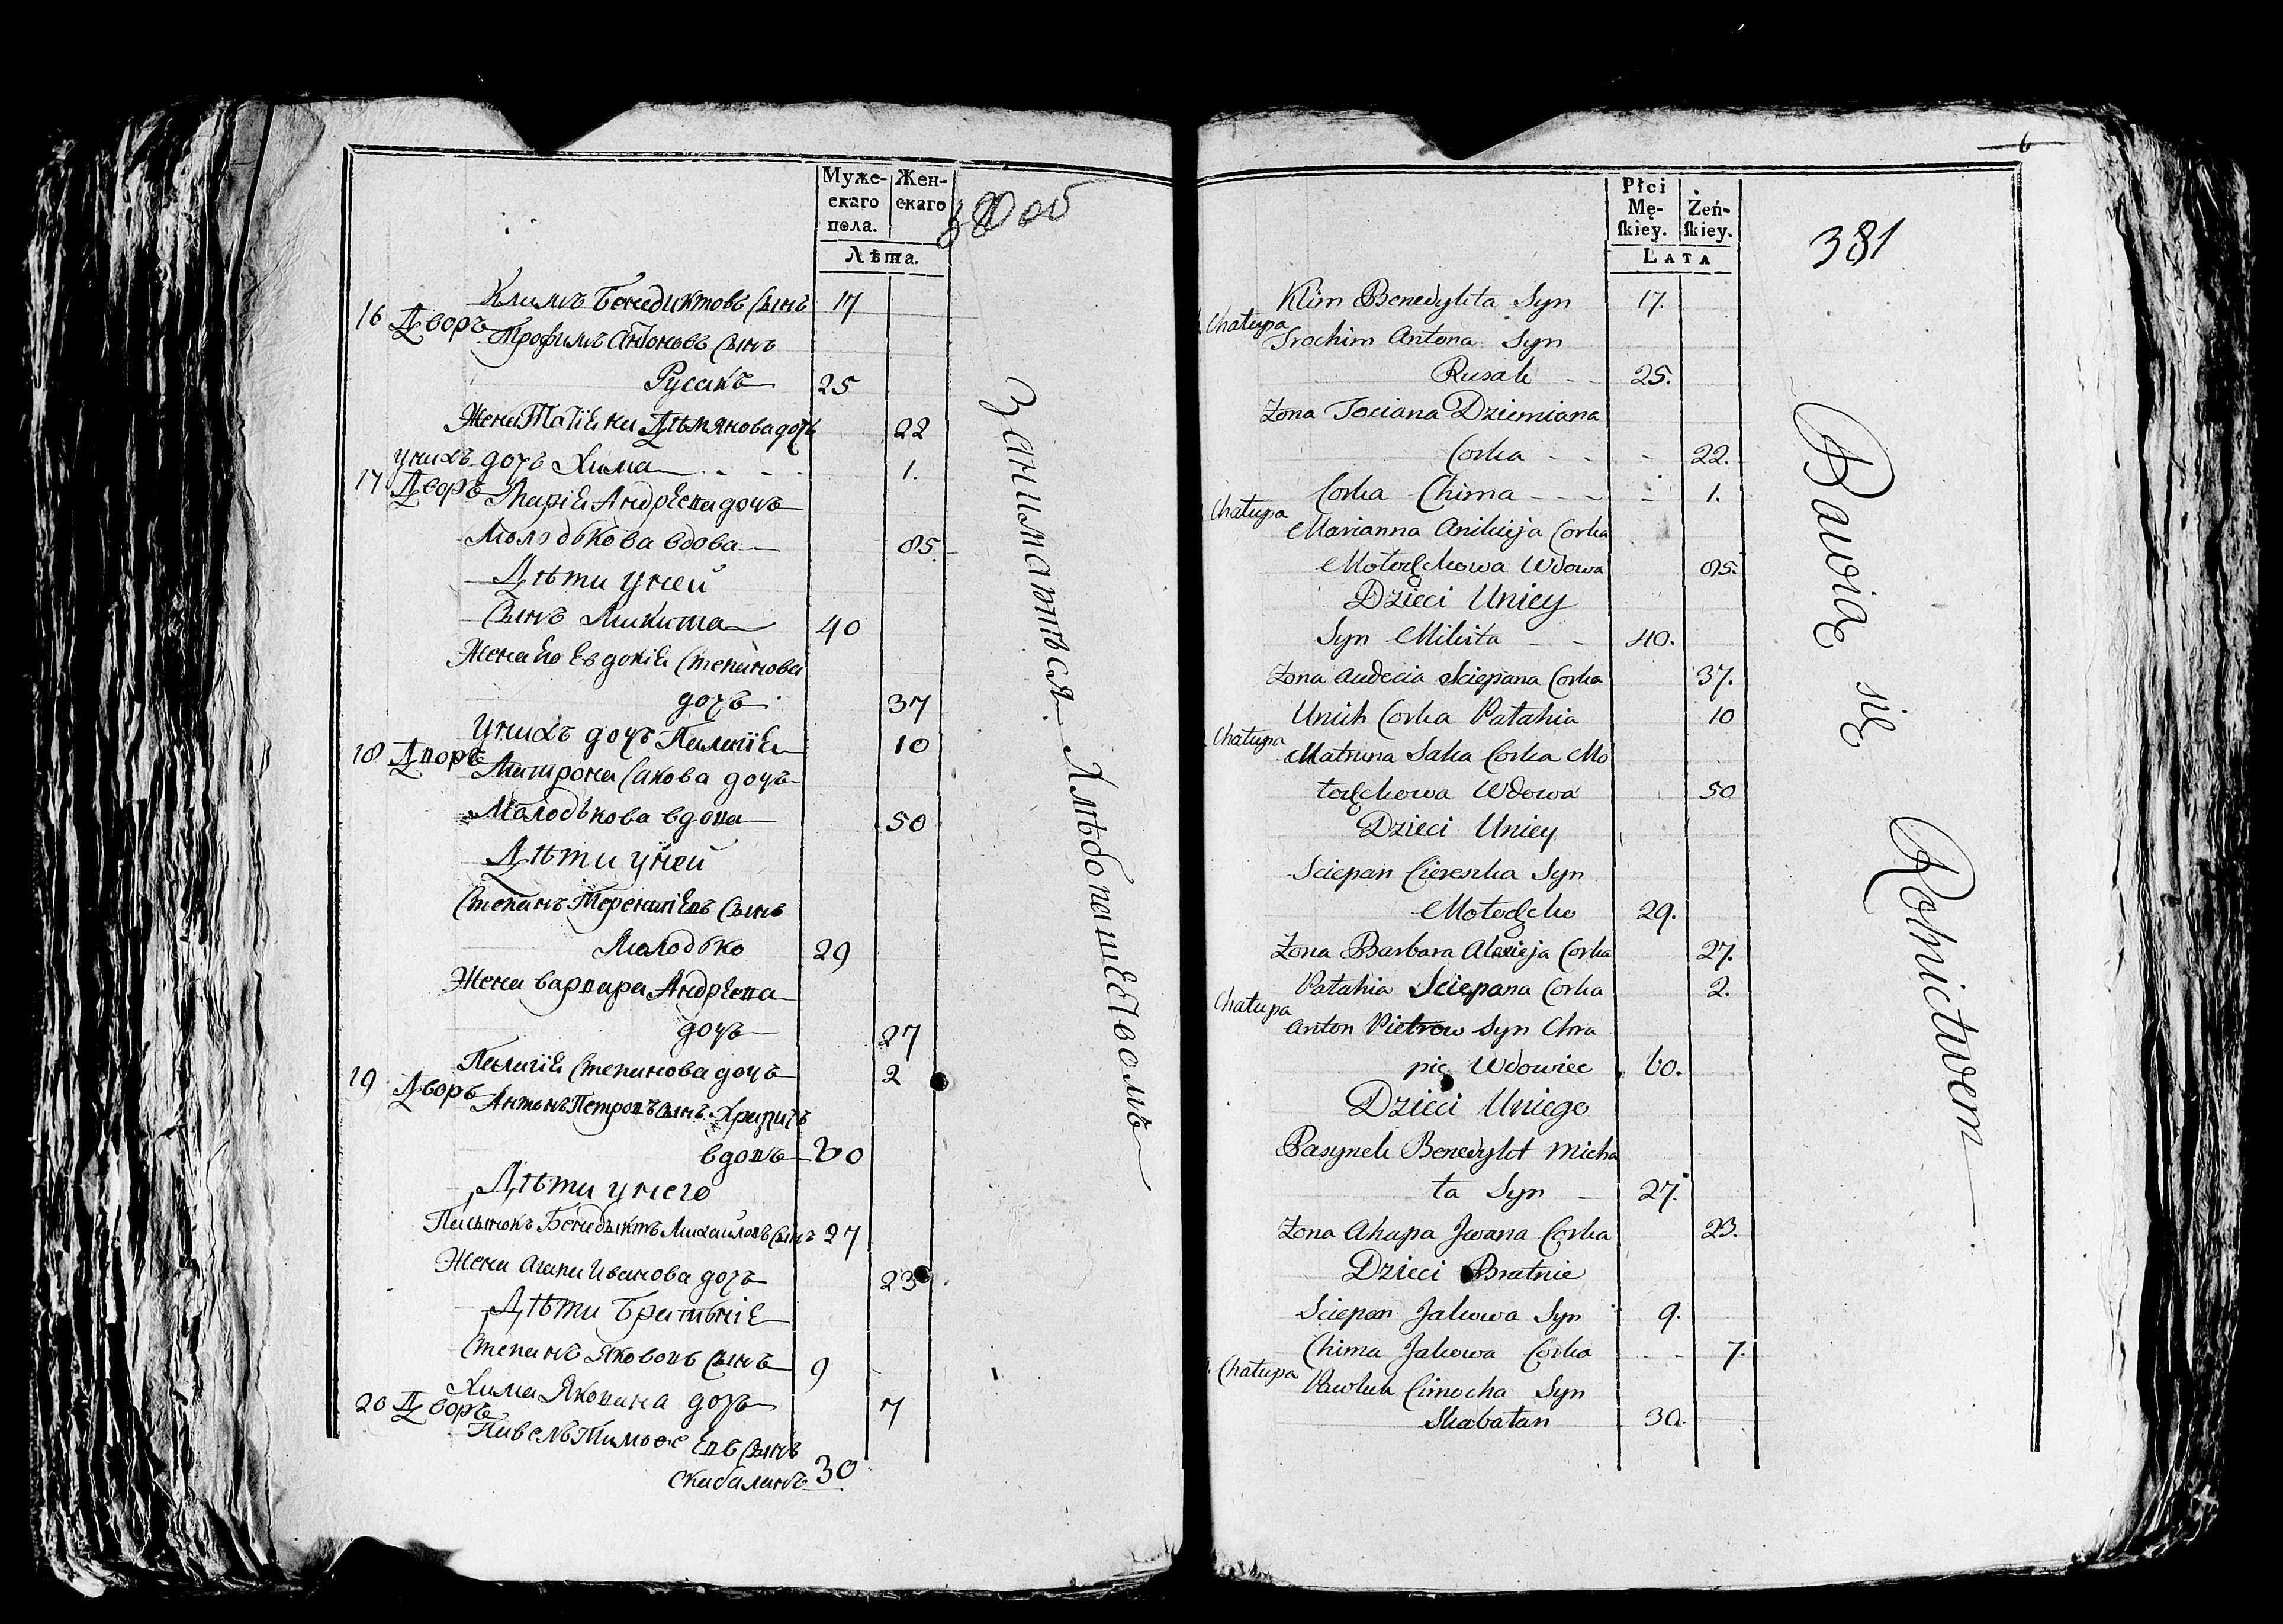 Муже-
скаго
пола.
Жен-
скаго
Лѣта.
Климъ Бенедиктовъ Сынъ 17
16 Дворъ
Трофимъ Антоновъ Сынъ
Русакъ 25
Жена Татiена Демянова дочь 22
унихъ дочь Хима 1.
17 Дворъ
Марiя Андреева дочь
Молодькова вдова 85
Дѣти уней
Сынъ Микита 40
Жена Ево Евдокiя Степанова
дочь 37
унихъ дочъ Пелагiя 10
18 Дворъ
Матрона Сакова дочь
Молодькова вдова 50
Дѣти уней
Степанъ Терентiевъ Сынъ
Молодько 29
Жена варвара Андреева
дочь 27
Пелагiя Степанова дочь 2
19 Дворъ
Антонъ Петровъ Сынъ Храпичъ
вдовъ 60
Дѣти унего
Пасынокъ Бенедыктъ Михайловъ Сынъ 27
Жена Агапа Иванова дочь 23
Дѣти Братьнiе
Степанъ Якововъ Сынъ 9
Хима Яковина дочь 7
20 Дворъ
Павелъ Тимофеевъ Сынъ
Скабаланъ 30
Занимаються Хлѣбопашествомъ
6
Płci
Mę-
skiey.
Żeń-
skiey.
LATA
381
Klim Benedykta Syn 17.
Chałupa
Trochim Antona Syn
Rusak 25.
Zona Tociana Dziemiana
Corka 22.
Corka Chima 1.
Chałupa
Marianna Anikieja Corka
Mołodzkowa Wdowa 85.
Dzieci Uniey
Syn Mikita 40.
Zona Audocia Sciepana Corka 37.
Unich Corka Patahia 10
Chałupa
Matruna Saka Corka Mo
łodzkowa Wdowa 50
Dzieci Uniey
Sciepan Ciereszka Syn
Mołodzko 29.
Zona Barbara Alexieja Corka 27.
Patahia Sciepana Corka 2.
Chałupa
Anton Pietrow Syn Chra
pic Wdowiec 60.
Dzieci Uniego
Pasynek Benedykt Micha
ła Syn 27.
Zona Ahapa Jwana Corka 23.
Dzieci Bratnie
Sciepan Jakowa Syn 9.
Chima Jakowa Corka 7.
Chałupa
Pawluk Cimocha Syn
Skabałan 30.
Bawią się Rolnictwem